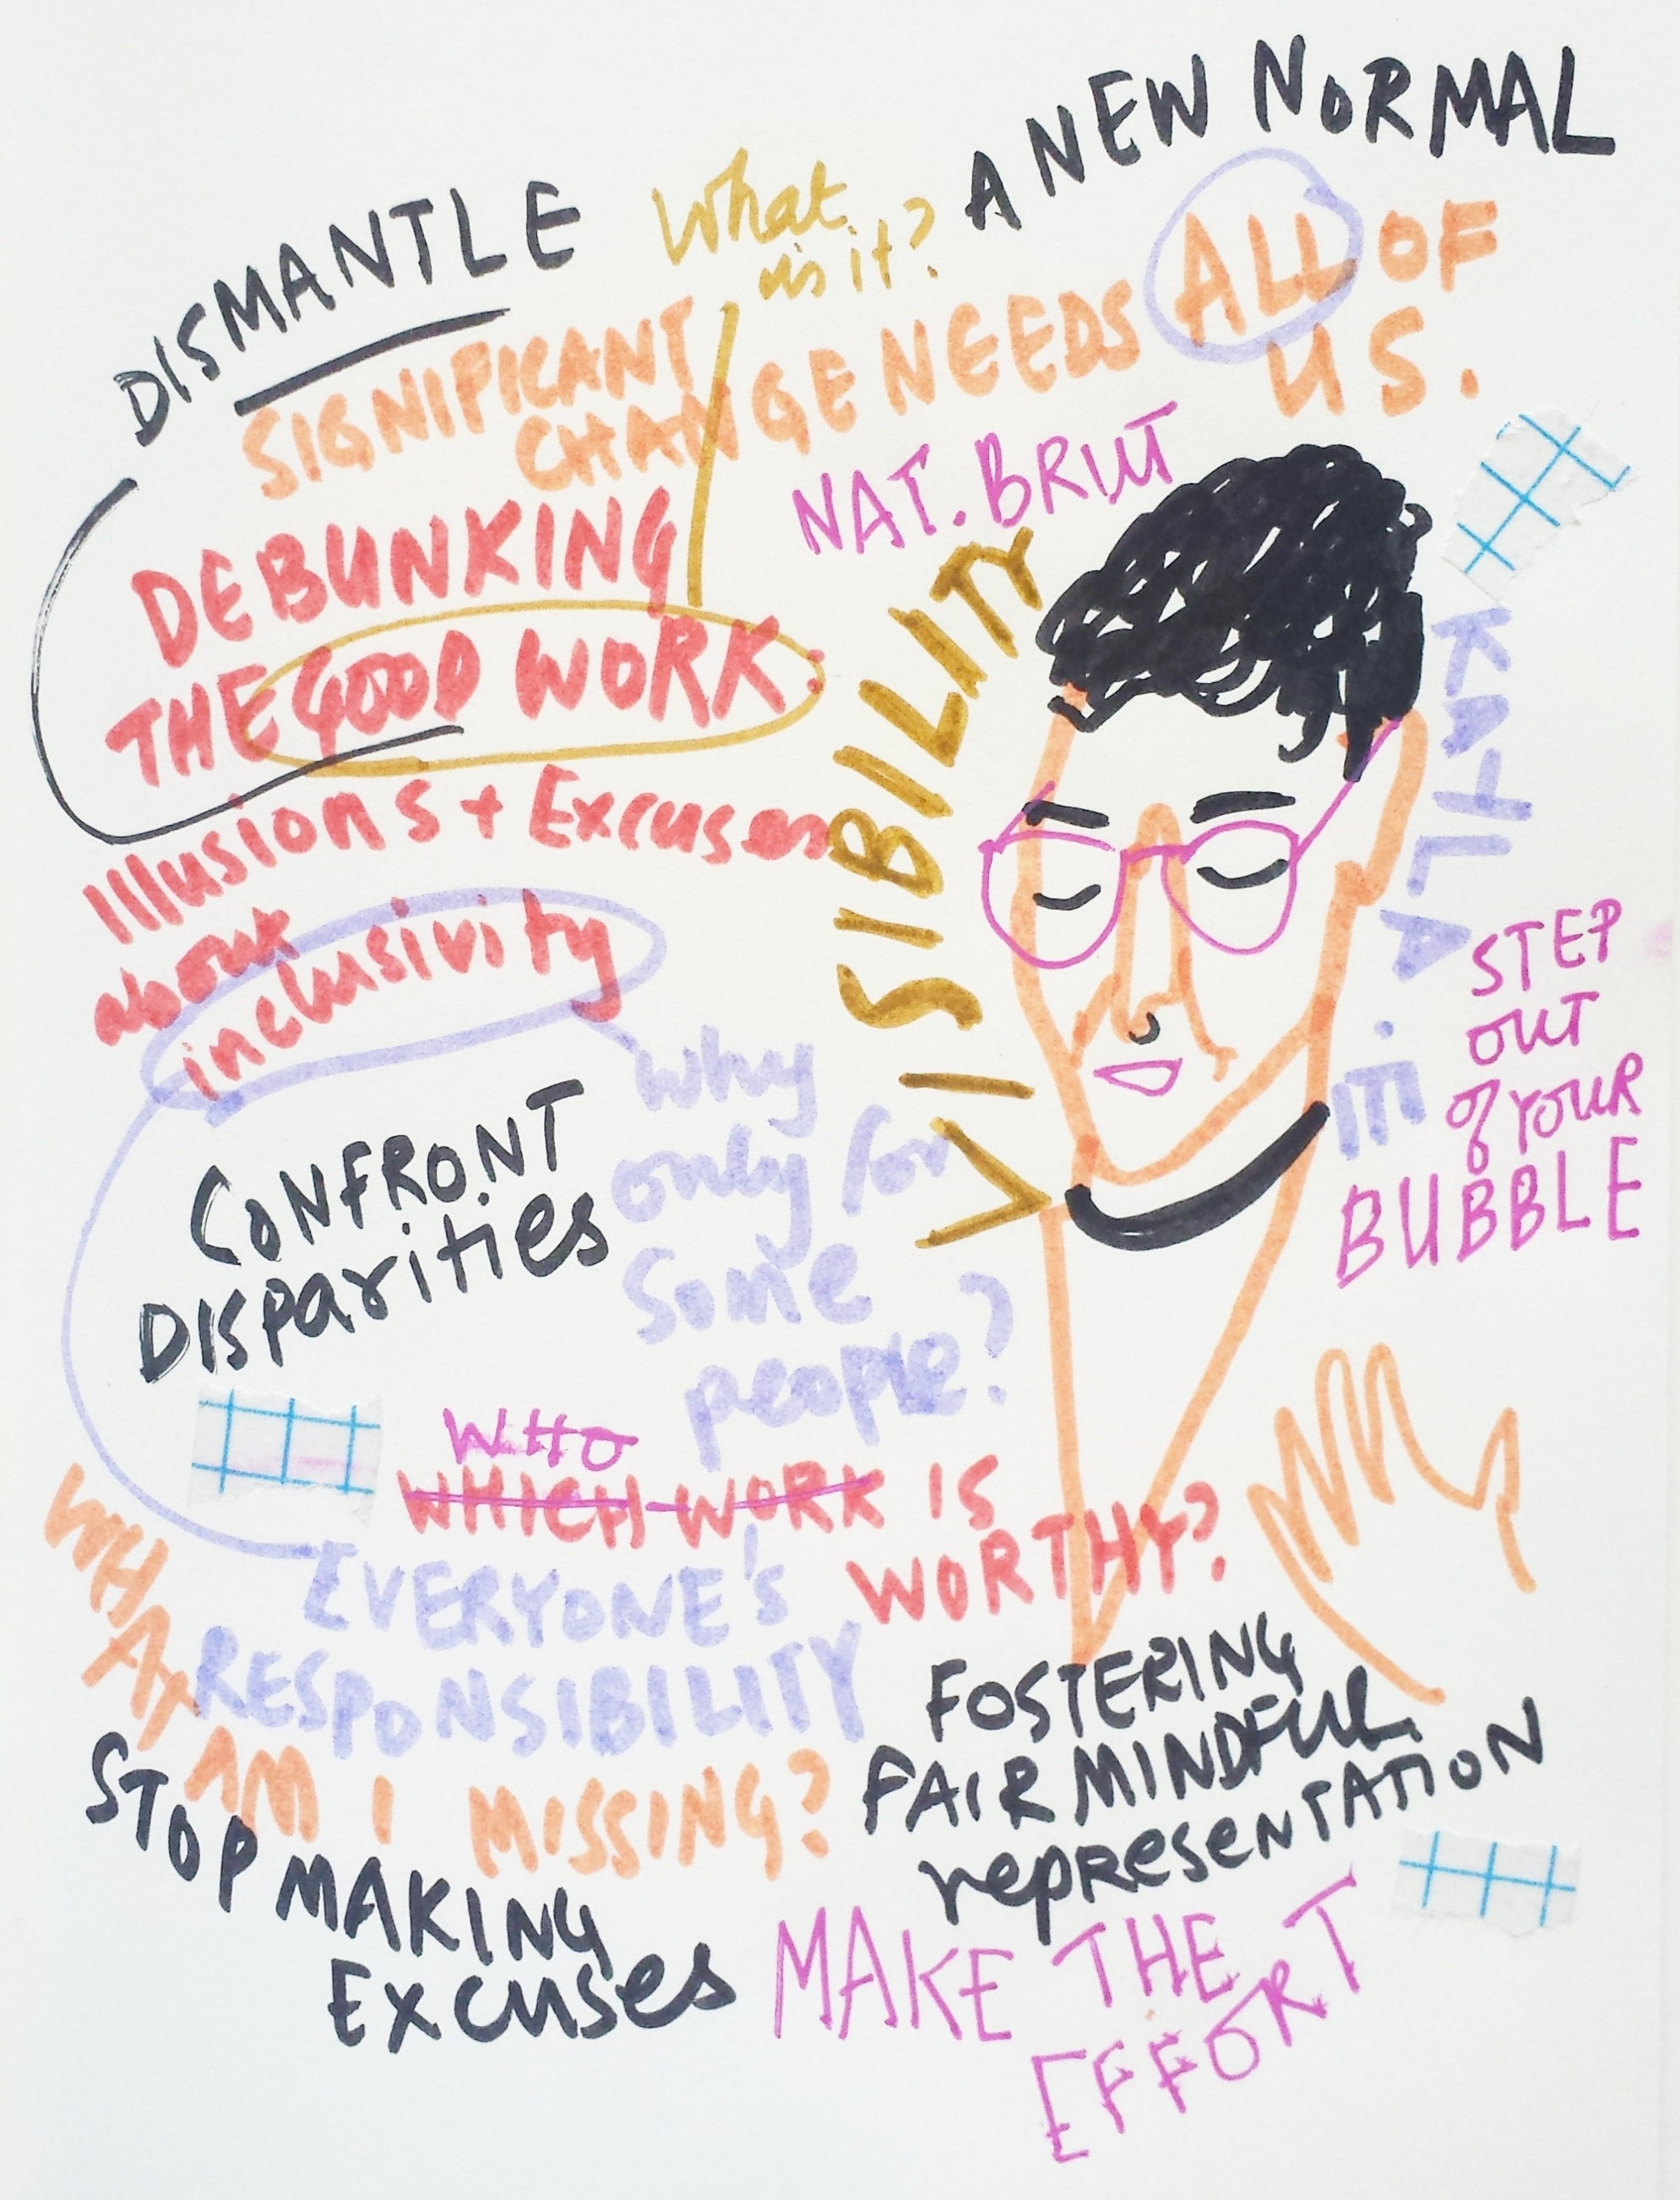 A NEW NORMAL
DISMANTLE
What
is it?
SIGNIFICANT
CHANGE NEEDS ALL OF
US.
NAT. BRUT
DEBUNKING
THE GOOD WORK:
Illusions + Excuses
about
inclusivity
VISIBILITY
KAYLA E.
STEP
OUT
of YOUR
BUBBLE
Why
only for
Some
people?
CONFRONT
DISparities
WHO
WHICH WORK IS
WORTHY?
EVERYONE'S
RESPONSIBILITY
WHAT
AM I MISSING?
STOP MAKING
EXCUSES
FOSTERING
FAIR MINDFUL
representation
MAKE THE
EFFORT